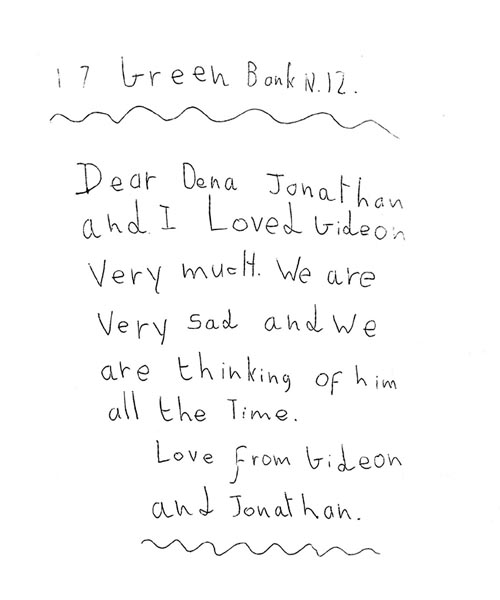 17 Green Bank N.12.
Dear Dena Jonathan
and I Loved Gideon
Very much. We are
Very sad and We
are thinking of him
all the Time.
Love from Gideon
and Jonathan.